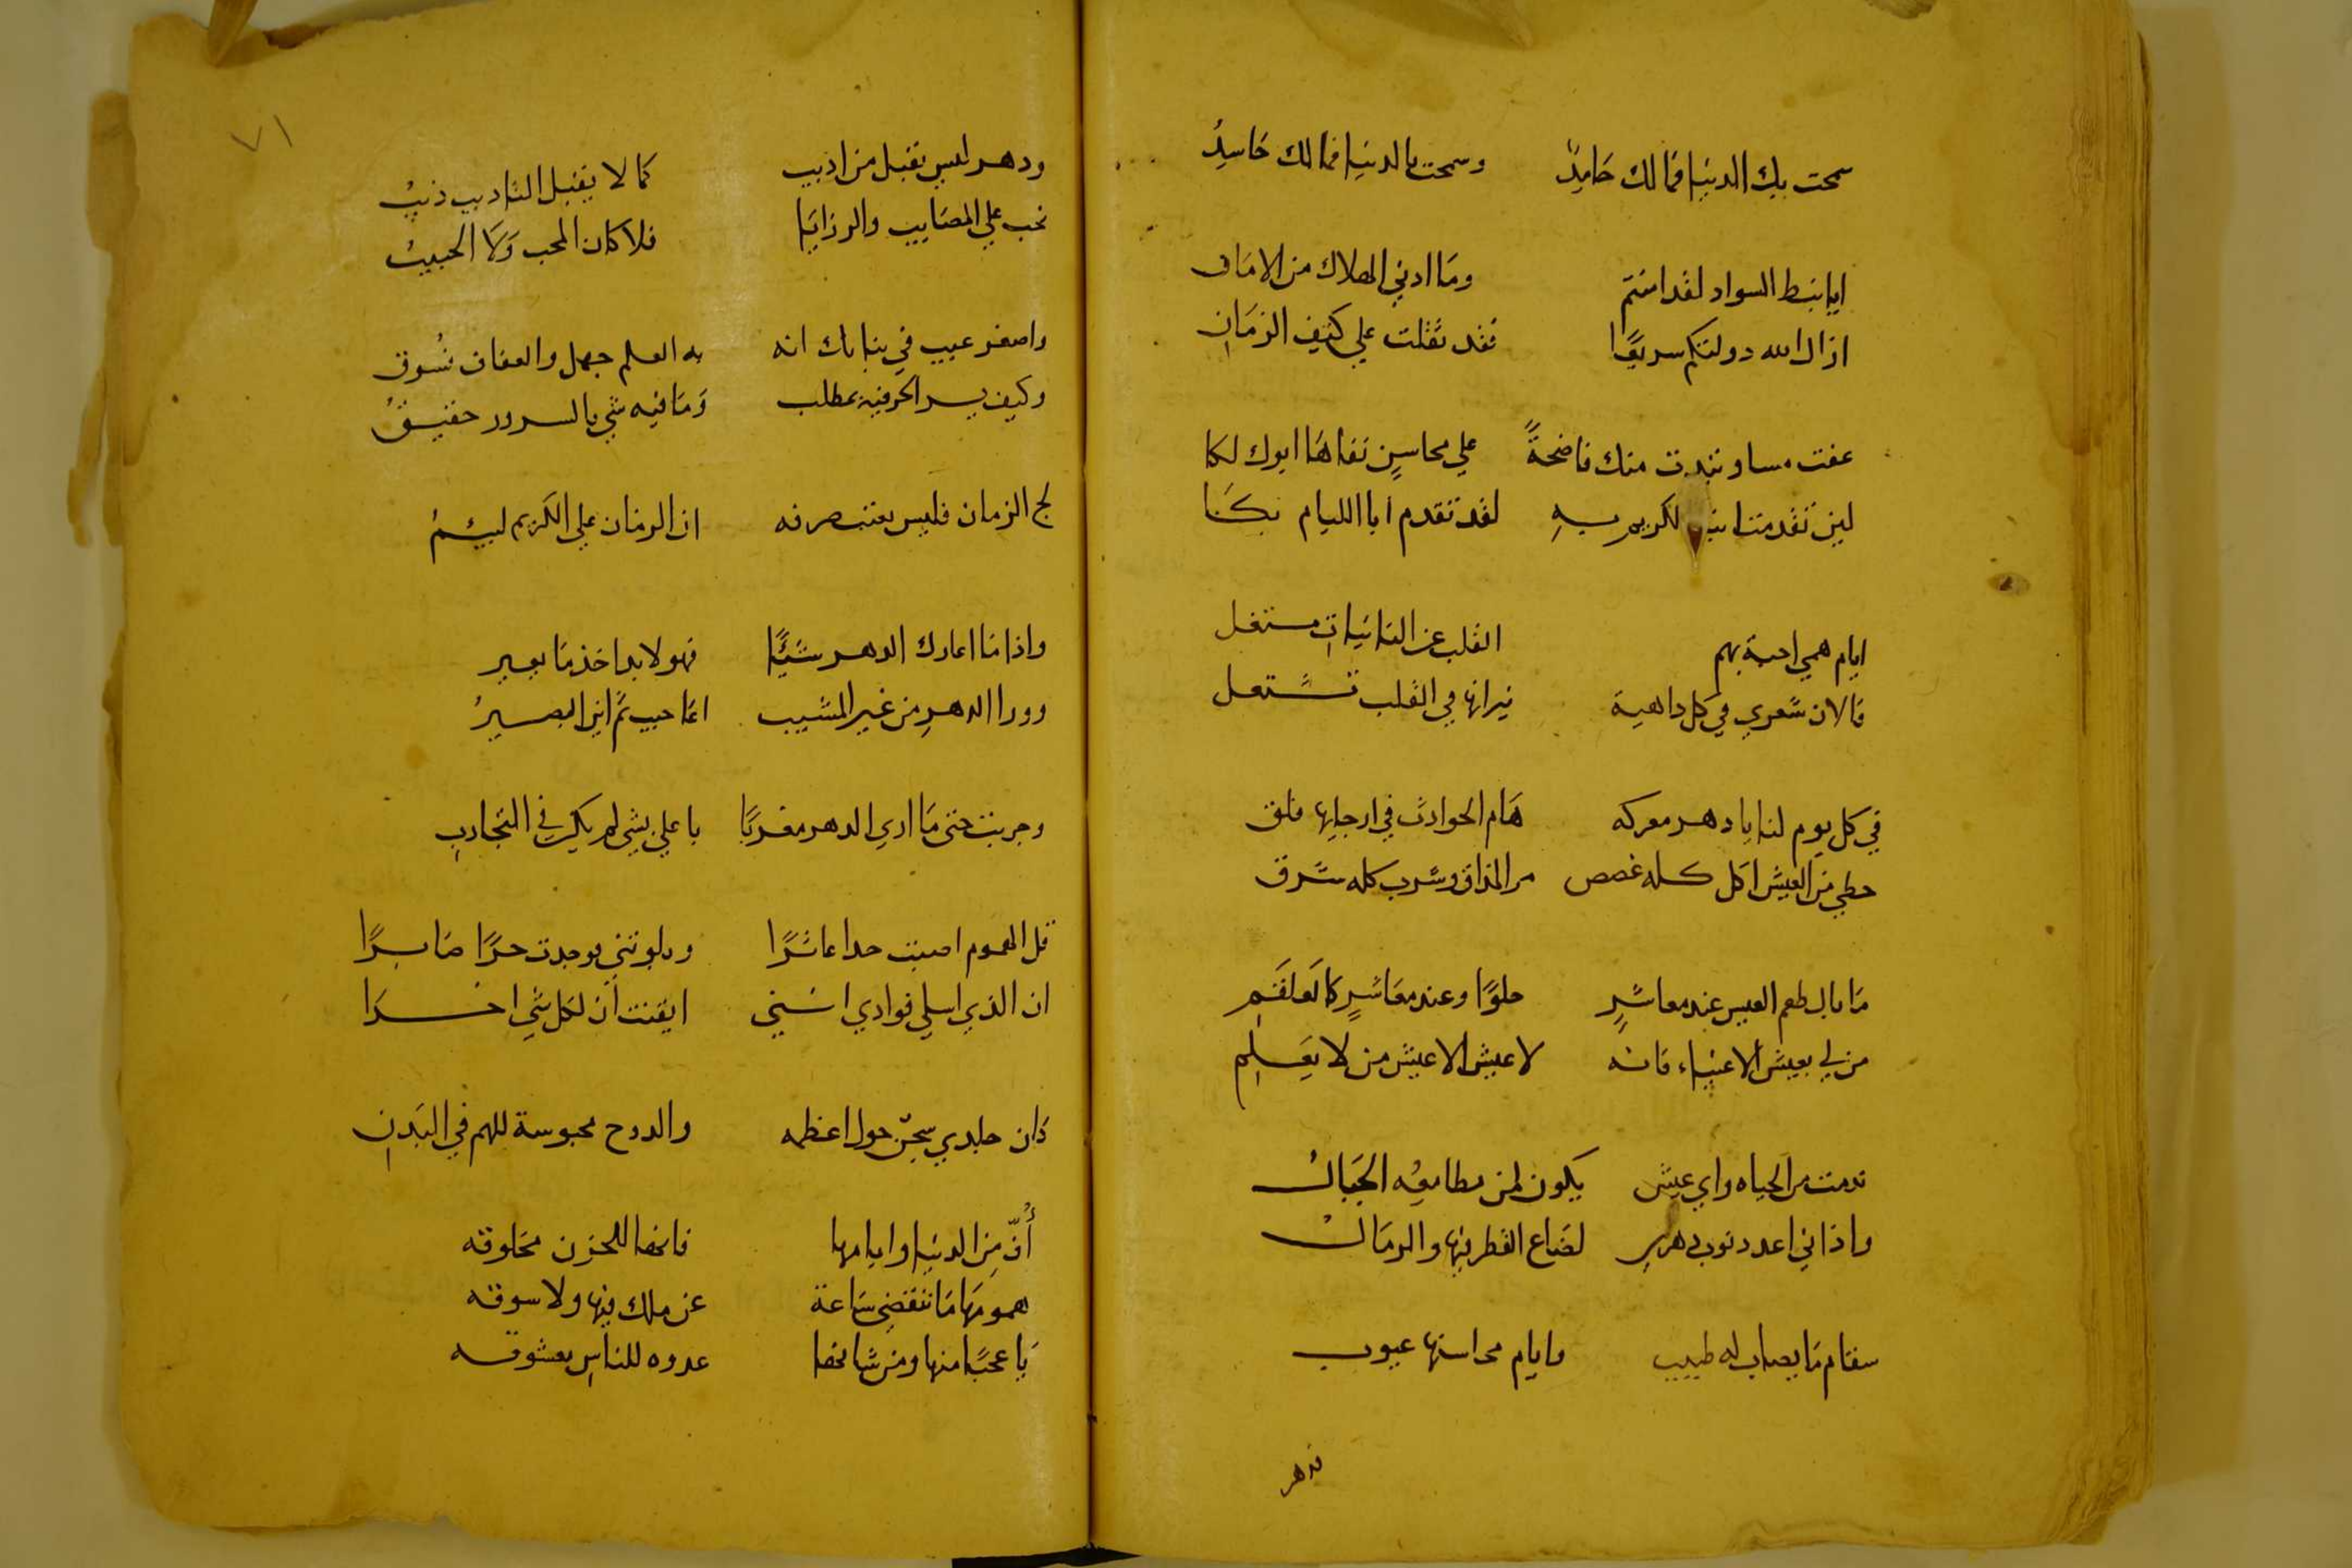 سمحت بك الدنيا فمالك حَامِدٌ وسمحت بالدنيا فمالك حَاسِدُ
ايا نبط السواد لقد امنتم ومَا ادني الهلاك من الامَان
ازال الله دولتكم سريعًا فقد ثقلت علي كتف الزمَانِ
عفت مساو تبدت منك فاضحةً علي محاسنٍ نفاهَا ابوك لكا
لين تقدمت الكريم بهِ لقد تقدم ابا الليام بكَا
ايام همي احبة بهم القلب عن النائبات مشتغل
فالان شعري في كل داهية نيرانها في القلب تشتعل
في كل يوم لنا يا دهر معركه هَام الحوادث في ارجايها فلق
حظي من العيش اكل كله غصص مر المذاق وشرب كله شرق
مَا بال طعم العيس عند معاشرٍ حلوًا وعند معَاشرٍ كالعَلقَمِ
من لي بعيش الاغنياء فانه لا عيش الا عيش من لا يَعلمِ
ندمت من الحياه واي عيش يكون لمن مطامعُه الجبَالُ
واذا ني اعدد نوب دهري لضاع القطر فيها والرمَالُ
سقام مَا يصاب له طبيب وايام محاسنها عيوب
فدهر
٧١
ودهر ليس تقبل من اديب كما لا يقبل التاديب ذيبُ
نحب علي المصَايب والرزايَا فلا كان المحب وَلا الحبيبُ
واصغر عيب في زمانك انه به العلم جهل والعفاف فُسوق
وكيف يسر الحر فيه بمطلب وَمَا فيه شي بالسرور حقيقُ
لج الزمان فليس يعتب صرفه ان الزمان علي الكَريم لييمُ
واذا مَا اعارك الدهر شيًّا فهو لا بد اخذ مَا يعير
وورا الدهرِ من غير المشيب اعَاجيب ثم اين البصيرُ
وجربت حتى مَا اري الدهر مغربًا باعلي بشي لم يكن في التجاربِ
قل الهموم اصبت حدا عاثرًا وبلوتني فوجدت حرًا صَابرًا
ان الذي اسلي فوادي انني ايقنت ان لكل شي اخرَا
كَان جلدي سجنٌ حول اعظمه والروح محبوسة للهم في البَدنِ
أُفٍّ مِن الدنيا وايامها فانها للحزن مخلوقه
همومَها مَا تنقضي سَاعة عن ملك فيها ولا سوقه
يَا عجبًا منها ومن شانها عدوه للناسِ معشوقه